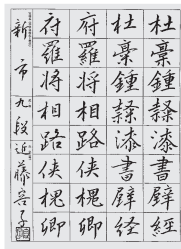 杜稾鍾隷漆書壁経
杜稾鍾隷漆書壁経
府羅将相路侠槐卿
府羅将相路侠槐卿
新市 九段 近藤